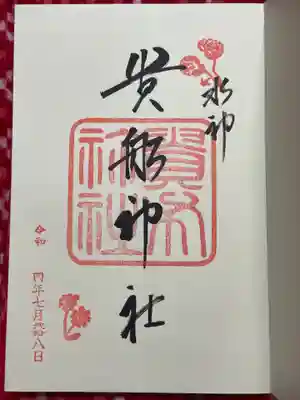 水神
貴船神社
貴船
神社
令和
四年七月廿八日